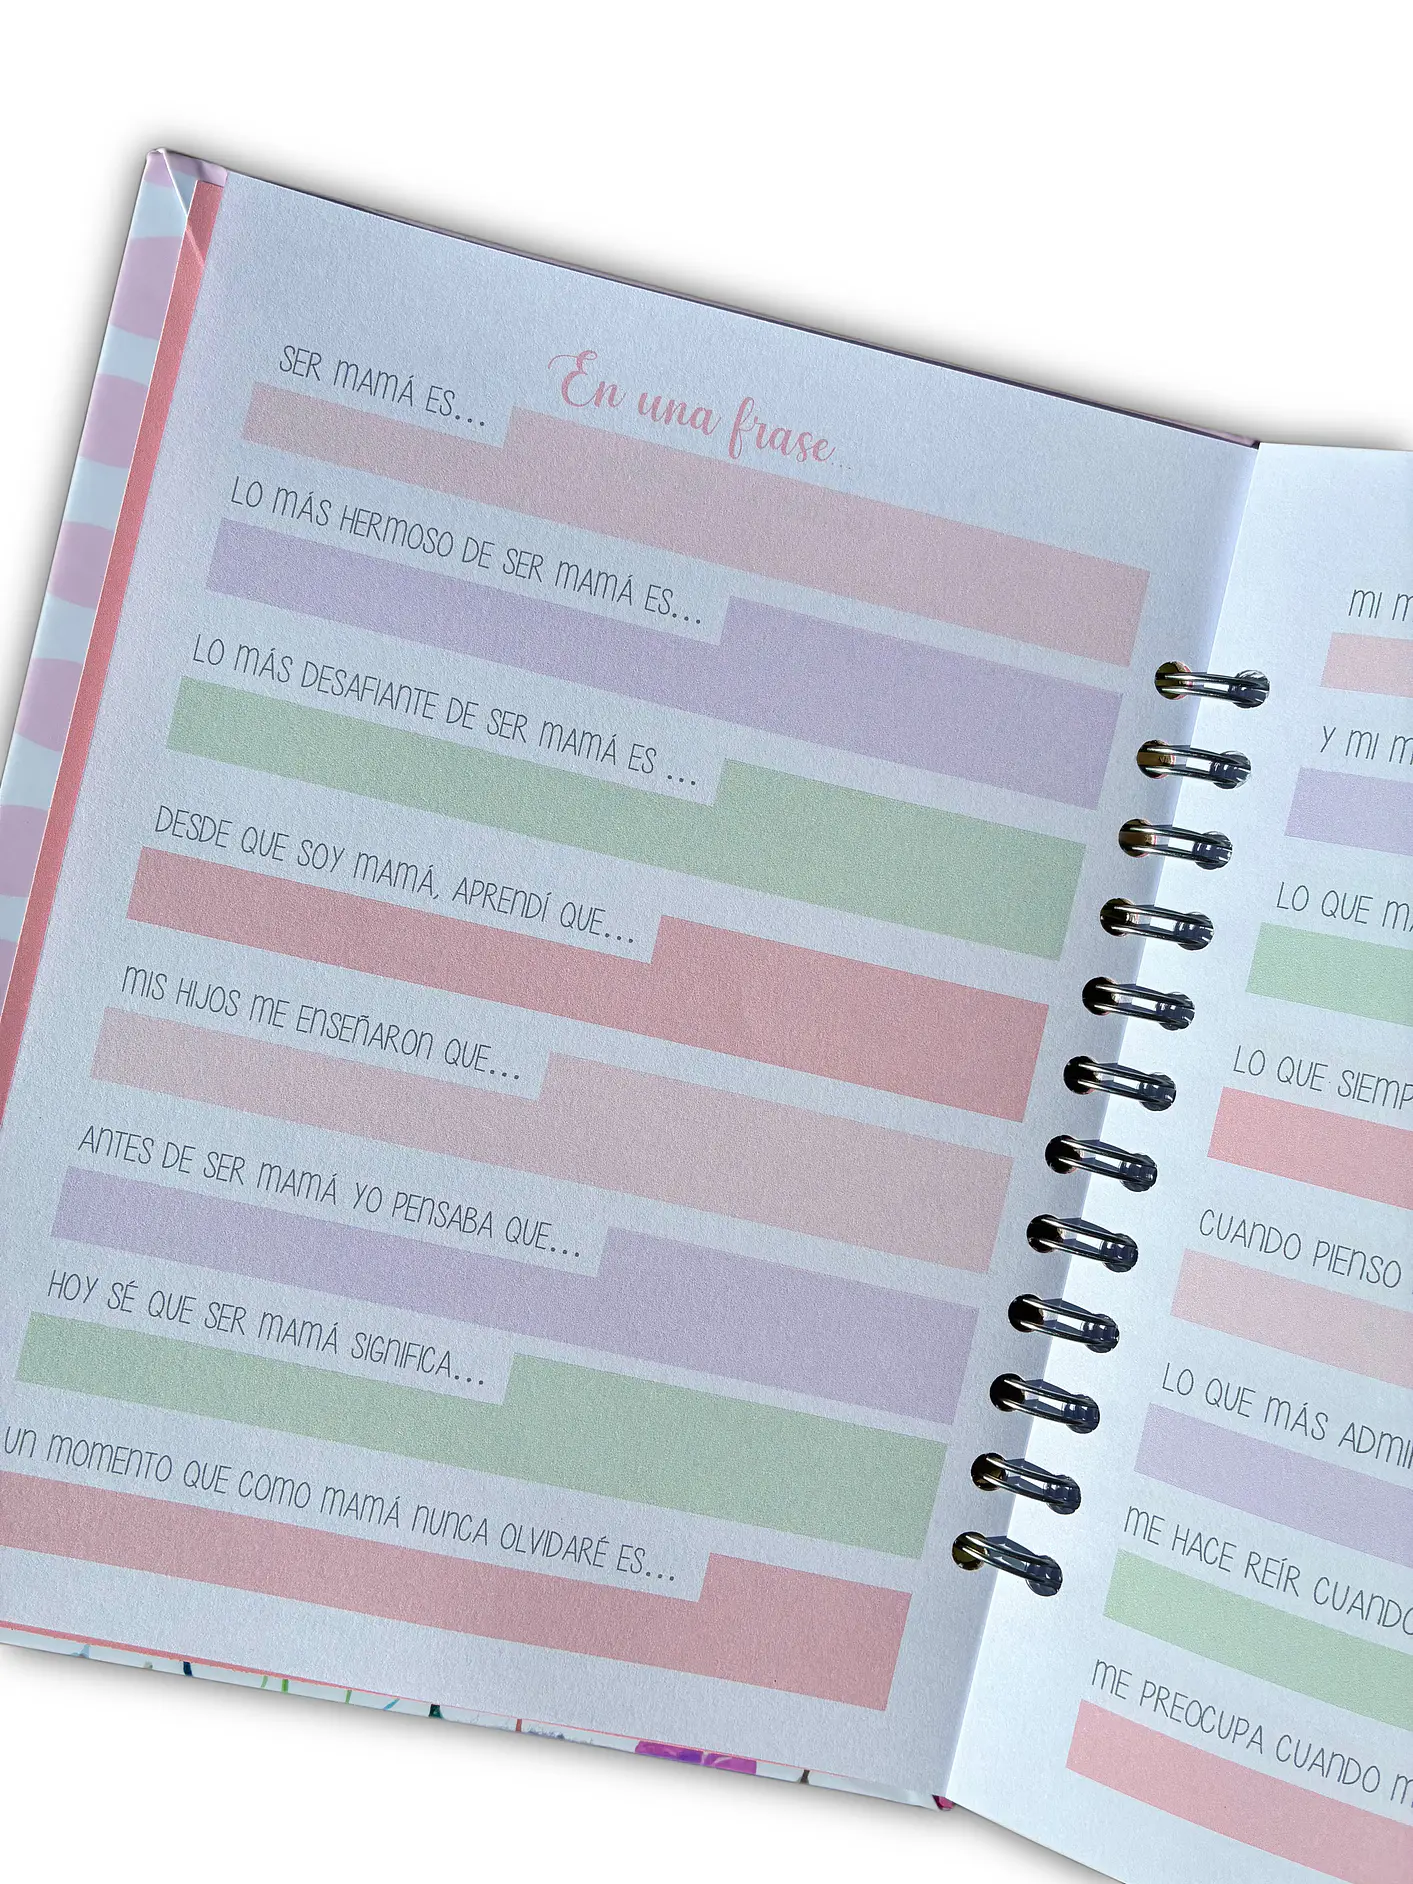 En una frase...
SER MAMÁ ES...
LO MÁS HERMOSO DE SER MAMÁ ES...
LO MÁS DESAFIANTE DE SER MAMÁ ES ...
DESDE QUE SOY MAMÁ, APRENDÍ QUE...
MIS HIJOS ME ENSEÑARON QUE...
ANTES DE SER MAMÁ YO PENSABA QUE...
HOY SÉ QUE SER MAMÁ SIGNIFICA...
UN MOMENTO QUE COMO MAMÁ NUNCA OLVIDARÉ ES...
MI
Y MI
LO QUE
LO QUE
CUANDO PIENSO
LO QUE MÁS
ME HACE REÍR CUANDO
ME PREOCUPA CUANDO